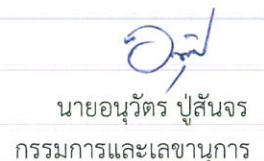 นายอนุวัตร ปู่สันจร
กรรมการและเลขานุการ